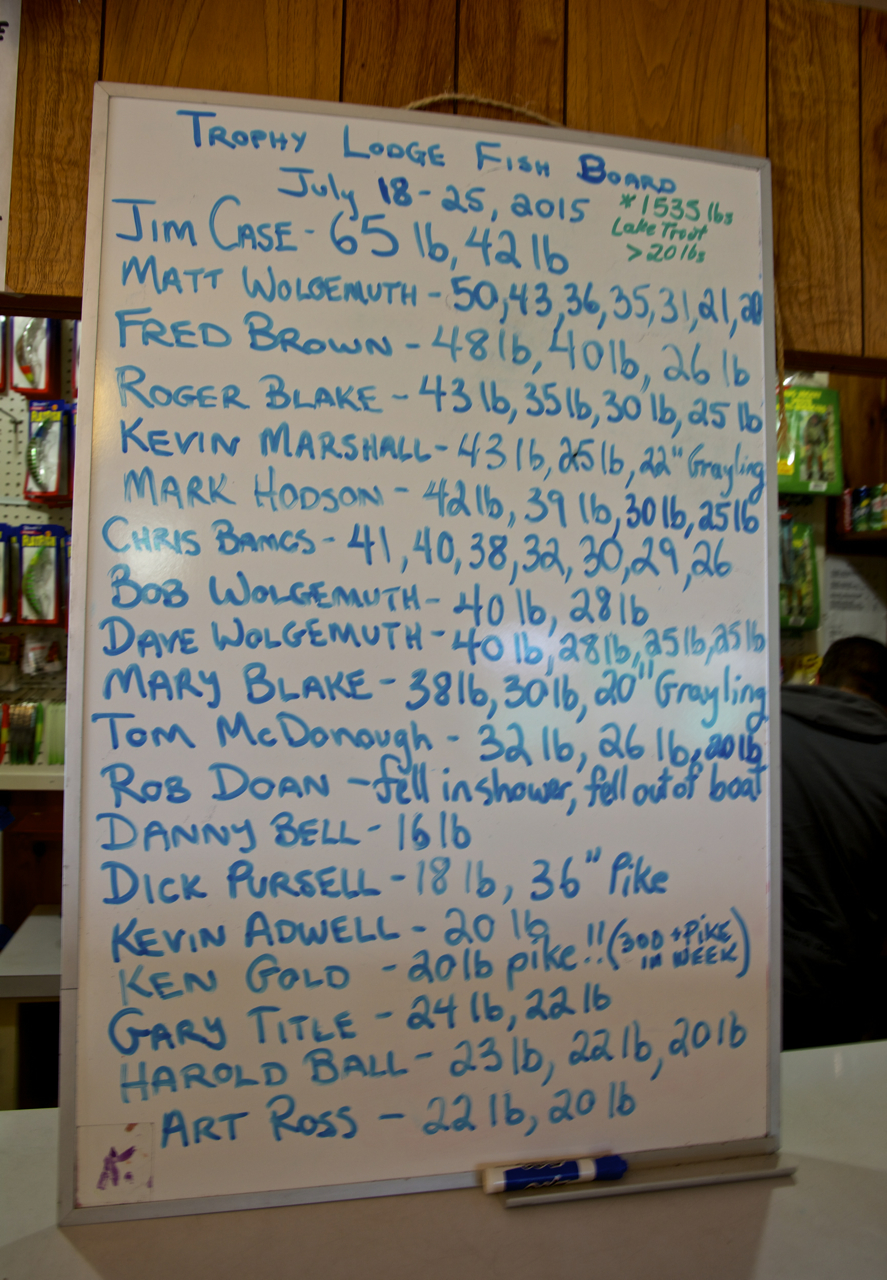 TROPHY LODGE FISH BOARD
July 18-25, 2015
*1535 lbs
Lake Trout
>20 lbs
JIM CASE - 65 lb, 42 lb
MATT WOLGEMUTH - 50, 43, 36, 35, 31, 21, 20
FRED BROWN - 48 lb, 40 lb, 26 lb
ROGER BLAKE - 43 lb, 35 lb, 30 lb, 25 lb
KEVIN MARSHALL - 43 lb, 25 lb, 22" Grayling
MARK HODSON - 42 lb, 39 lb, 30 lb, 25 lb
CHRIS BAMGS - 41, 40, 38, 32, 30, 29, 26
BOB WOLGEMUTH - 40 lb, 28 lb
DAVE WOLGEMUTH - 40 lb, 28 lb, 25 lb, 25 lb
MARY BLAKE - 38 lb, 30 lb, 20" Grayling
TOM McDonough - 32 lb, 26 lb, 20 lb
ROB DOAN - fell in shower, fell out of boat
DANNY BELL - 16 lb
DICK PURSELL - 18 lb, 36" Pike
KEVIN ADWELL - 20 lb
KEN GOLD - 20 lb pike!! (300 + PIKE
IN WEEK)
GARY TITLE - 24 lb, 22 lb
HAROLD BALL - 23 lb, 22 lb, 20 lb
ART ROSS - 22 lb, 20 lb